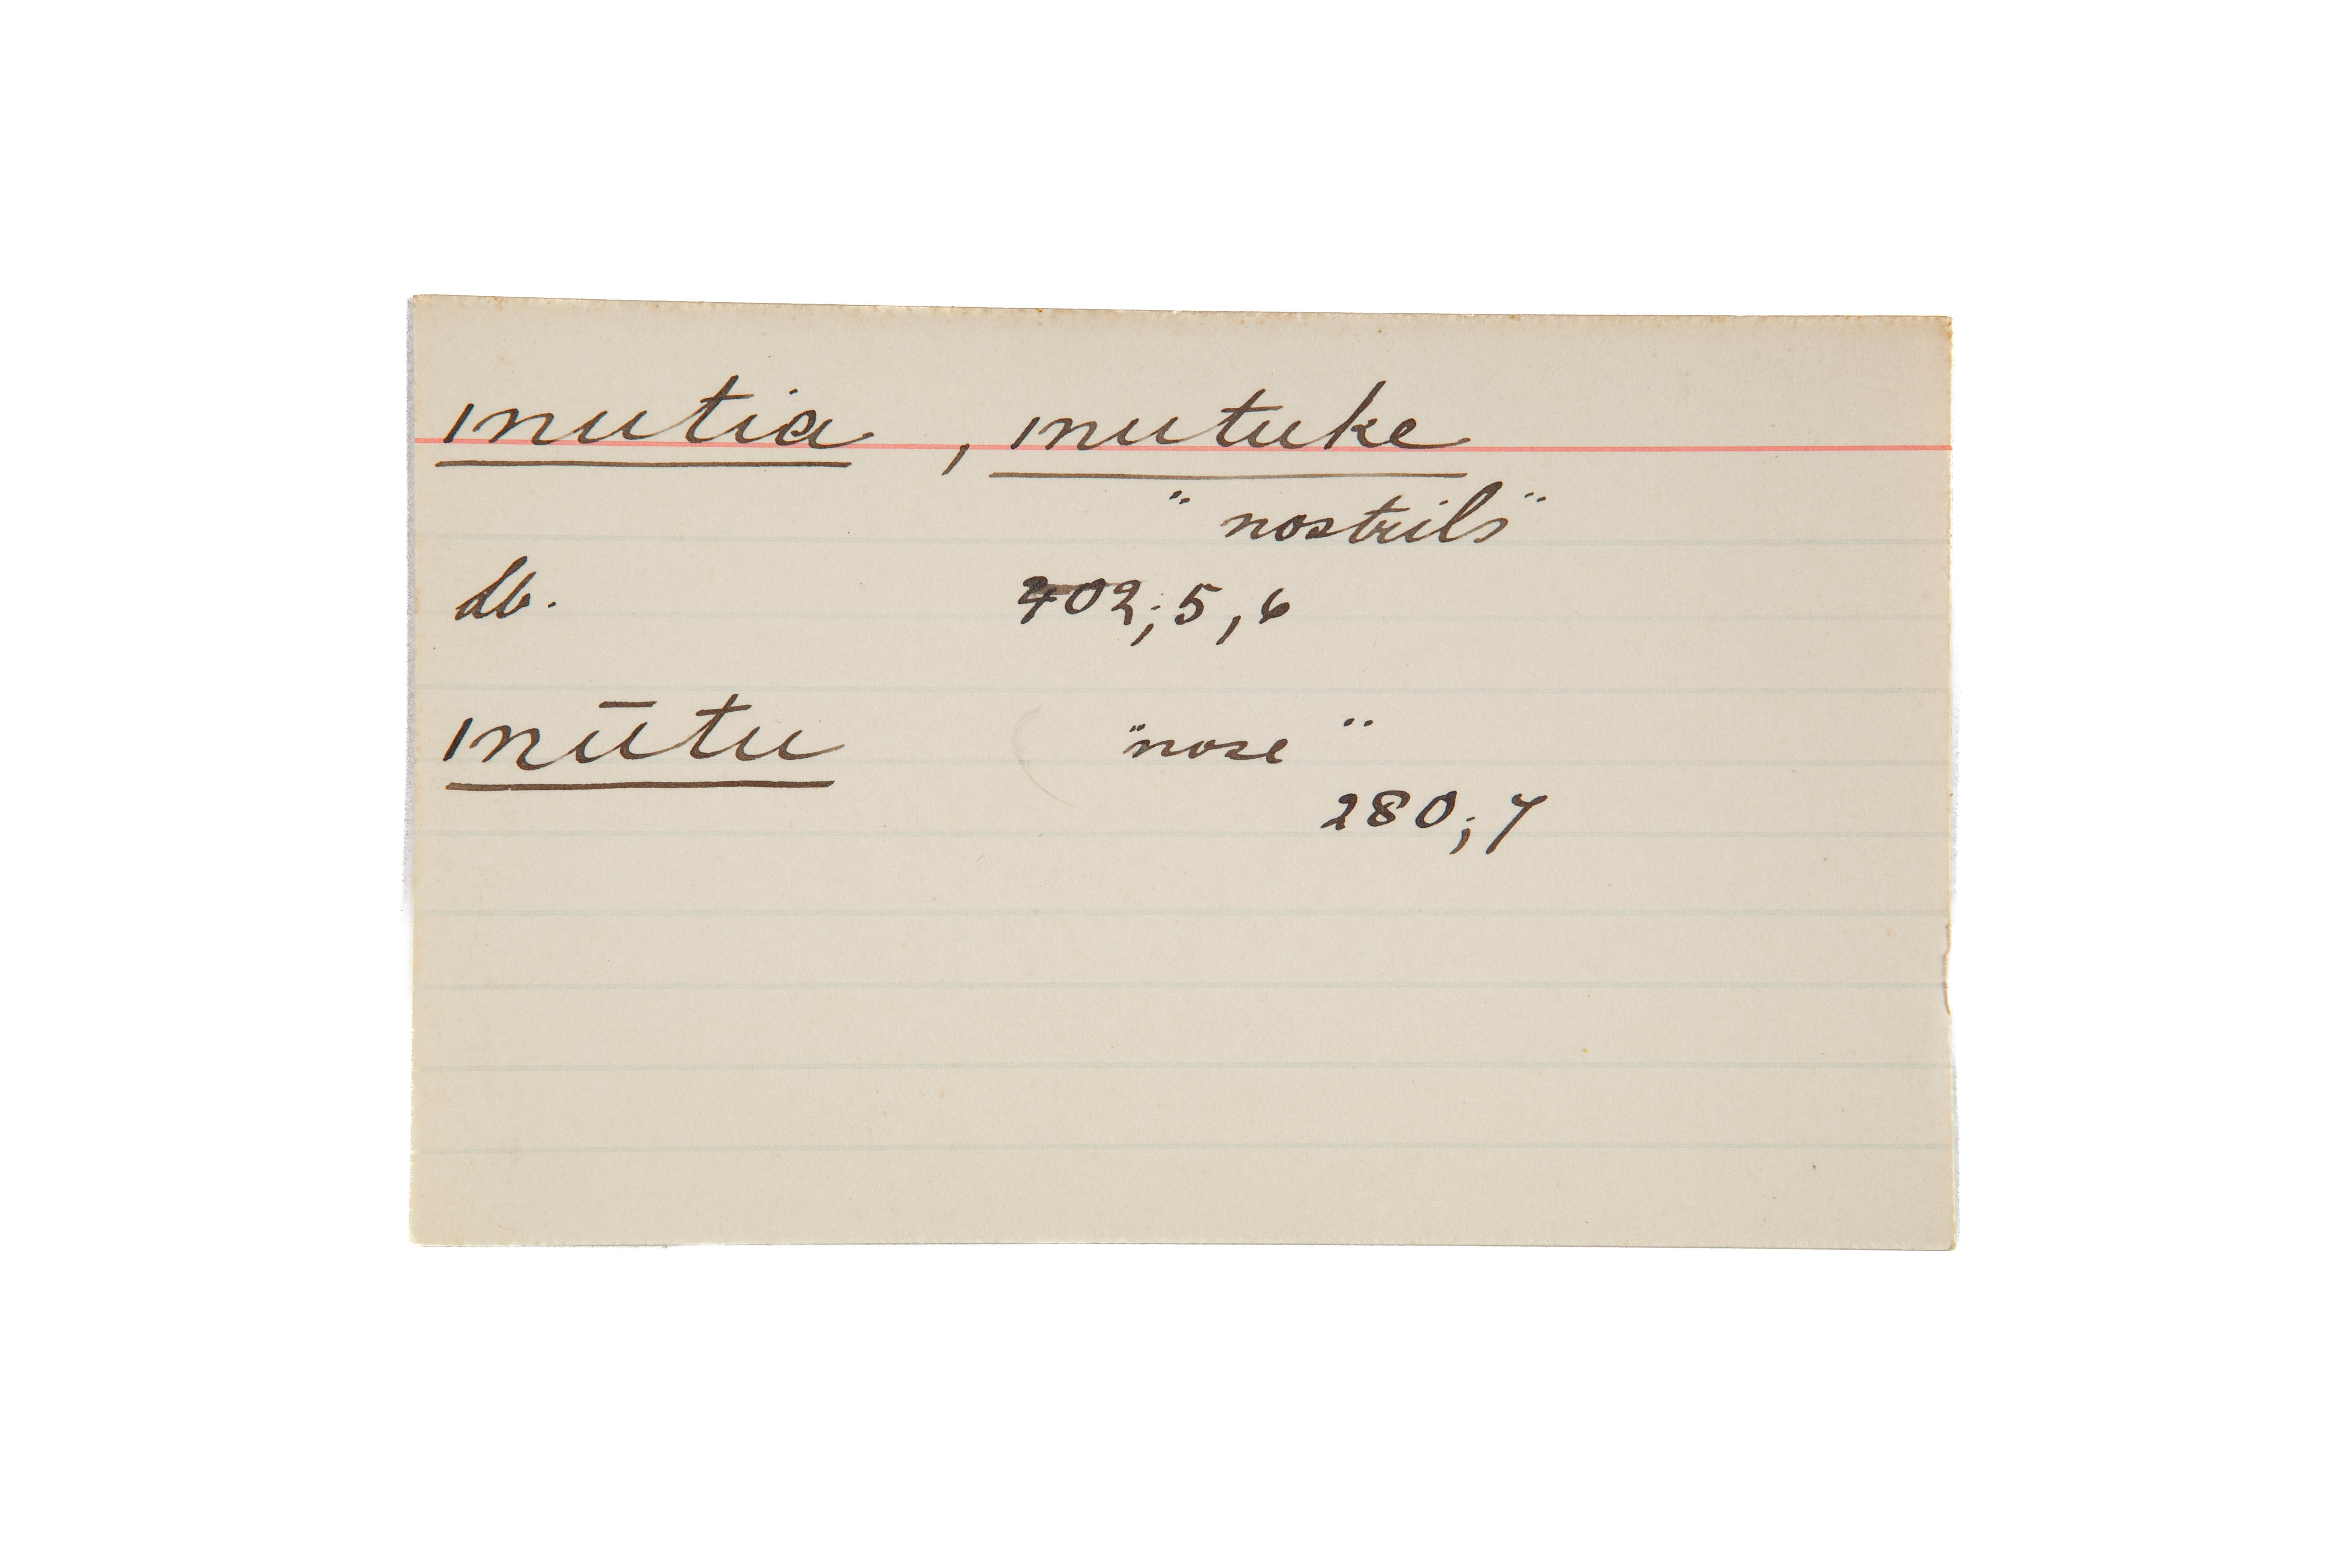 mutia , mutuke
"nostrils"
402;5,6
mūtu "nose"
280;7